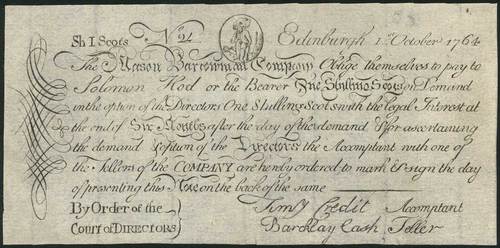 Sh I Scots No Edinburgh 1st October 1764
The Mason Barrowman Company Oblige themselves to pay to
Solomon Hod or the Bearer One Shilling Scots on Demand
or in the option of the Directors One Shilling Scots with the legal Interest at
the end of Six Months after the day of the demand & for ascertaining
the demand & option of the Directors the Accomptant with one of
the Tellers of the COMPANY are hereby ordered to mark & sign the day
of presenting this Note on the back of the same
By Order of the Timy Credit Accomptant
COURT of DIRECTORS Barcklay Cash Teller